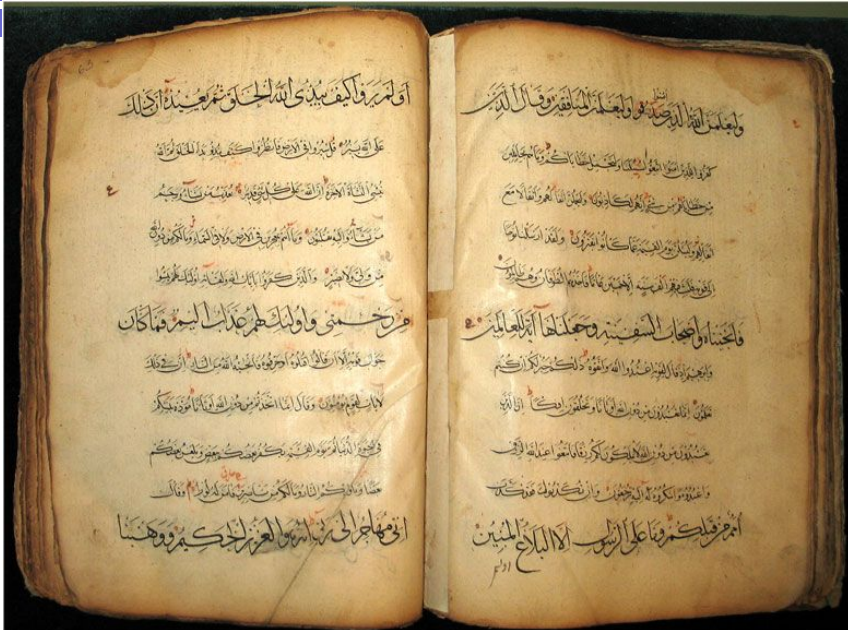 وليعلمن الله الذين صدقوا وليعلمن المنافقين وقال الذين
كفروا للذين امنوا اتبعوا سبيلنا ولنحمل خطاياكم وما هم بحاملين
من خطاياهم من شيء انهم لكاذبون وليحملن اثقالهم واثقالا مع
اثقالهم وليسئلن يوم القيمة عما كانوا يفترون ولقد ارسلنا نوحا
الى قومه فلبث فيهم الف سنة الا خمسين عاما فاخذهم الطوفان وهم ظالمون
فانجيناه واصحاب السفينة وجعلناها آية للعالمين
وابرهيم اذ قال لقومه اعبدوا الله واتقوه ذلكم خير لكم ان كنتم
تعلمون انما تعبدون من دون الله اوثانا وتخلقون افكا ان الذين
تعبدون من دون الله لا يملكون لكم رزقا فابتغوا عند الله الرزق
واعبدوه واشكروا له اليه ترجعون وان تكذبوا فقد كذب
امم من قبلكم وما على الرسول الا البلاغ المبين
اولم
اولم يروا كيف يبدئ الله الخلق ثم يعيده ان ذلك
على الله يسير قل سيروا في الارض فانظروا كيف بدأ الخلق ثم الله
ينشئ النشأة الاخرة ان الله على كل شيء قدير يعذب من يشاء ويرحم
من يشاء واليه تقلبون وما انتم بمعجزين في الارض ولا في السماء وما لكم من دون الله
من ولي ولا نصير والذين كفروا بآيات الله ولقائه اولئك يئسوا
من رحمتي واولئك لهم عذاب اليم فما كان
جواب قومه الا ان قالوا اقتلوه او حرقوه فانجيه الله من النار ان في ذلك
لايات لقوم يؤمنون وقال انما اتخذتم من دون الله اوثانا مودة بينكم
في الحيوة الدنيا ثم يوم القيمة يكفر بعضكم ببعض ويلعن بعضكم
بعضا ومأويكم النار وما لكم من ناصرين فآمن له لوط وقال
اني مهاجر الى ربي انه هو العزيز الحكيم ووهبنا